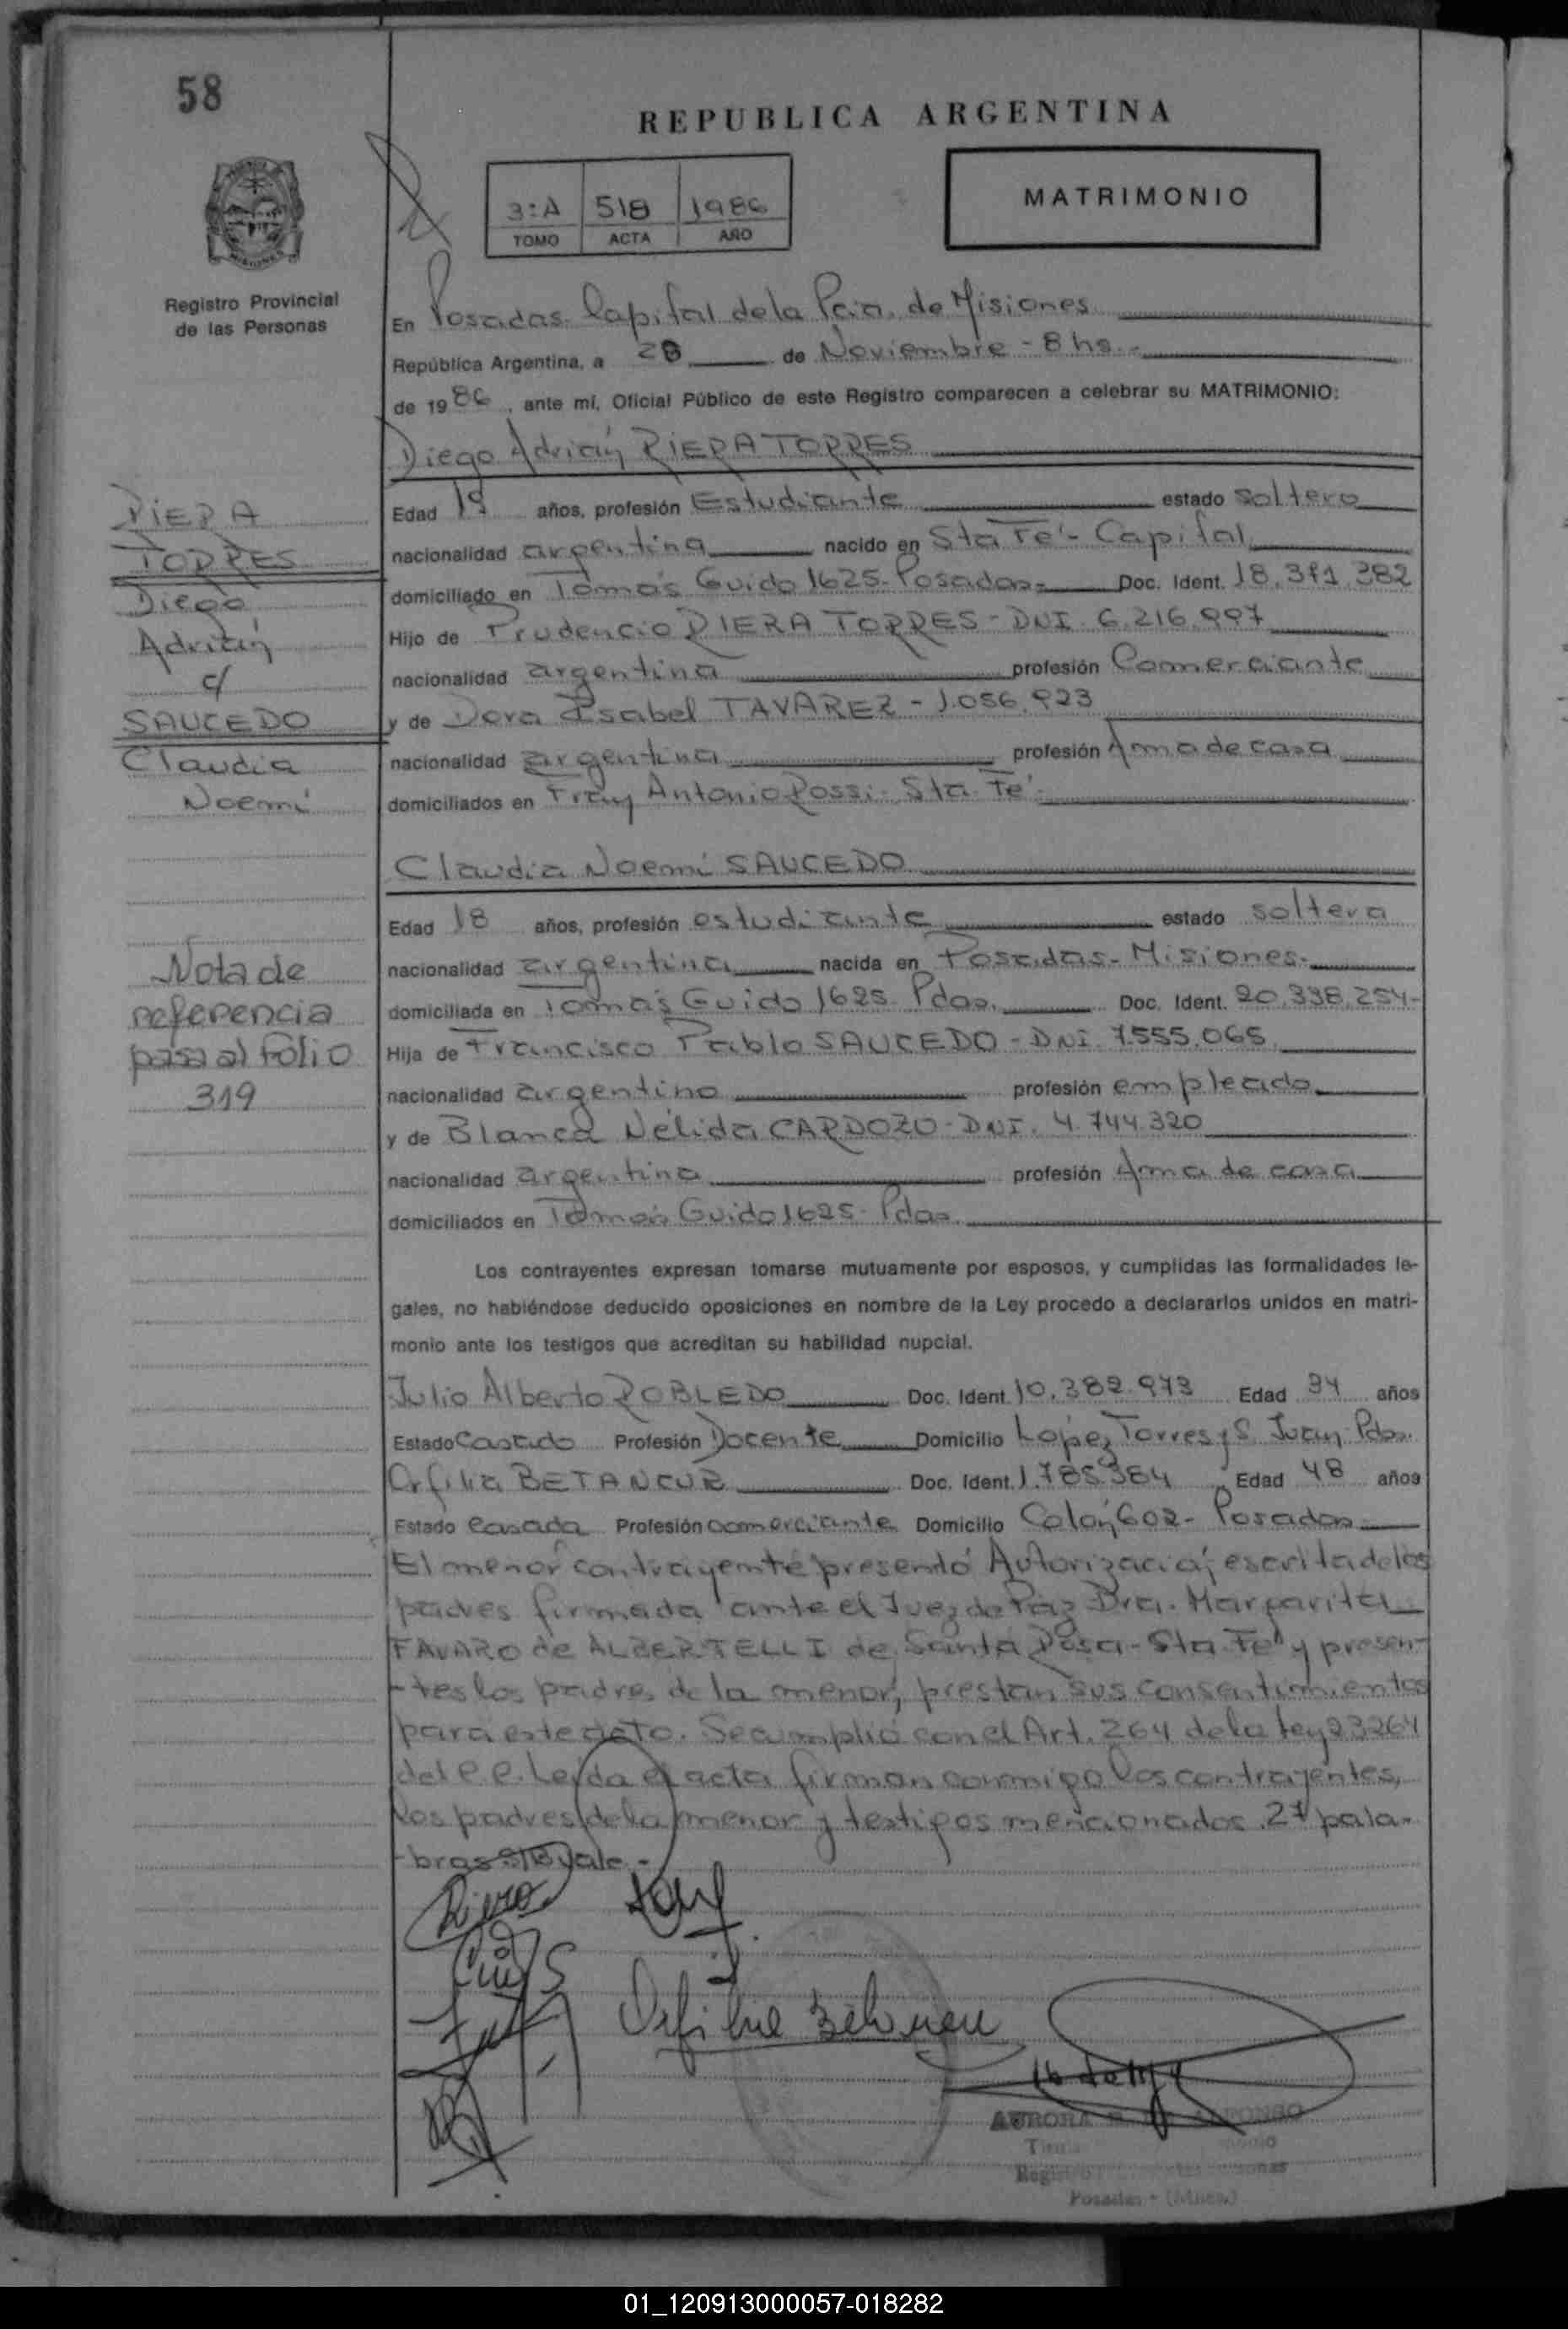 58
REPUBLICA ARGENTINA
3:A 518 1986
TOMO ACTA AÑO
MATRIMONIO
Registro Provincial
de las Personas
En Posadas Capital de la Pcia. de Misiones
República Argentina, a 28 de Noviembre - 8 hs.-
de 1986, ante mí, Oficial Público de este Registro comparecen a celebrar su MATRIMONIO:
Diego Adrián RIERA TORRES
RIERA
TORRES
Diego
Adrián
c/
SAUCEDO
Claudia
Noemí
Edad 19 años, profesión Estudiante estado soltero
nacionalidad argentina nacido en Sta Fé - Capital
domiciliado en Tomás Guido 1625- Posadas- Doc. Ident. 18.371.382
Hijo de Prudencio RIERA TORRES - DNI. 6.216.997
nacionalidad argentina profesión Comerciante
y de Dora Isabel TAVAREZ - 1.056.923
nacionalidad argentina profesión Ama de casa
domiciliados en Fray Antonio Rossi - Sta. Fé
Claudia Noemí SAUCEDO
Edad 18 años, profesión estudiante estado soltera
nacionalidad argentina nacida en Posadas - Misiones-
domiciliada en Tomás Guido 1625 Pdas. Doc. Ident. 20.338.254-
Hija de Francisco Pablo SAUCEDO - DNI. 7.555.065
nacionalidad argentino profesión empleado
y de Blanca Nélida CARDOZO - DNI. 4.744.320
nacionalidad argentina profesión Ama de casa
domiciliados en Tomás Guido 1625- Pdas.
Nota de
referencia
pasa al folio
319
Los contrayentes expresan tomarse mutuamente por esposos, y cumplidas las formalidades le-
gales, no habiéndose deducido oposiciones en nombre de la Ley procedo a declararlos unidos en matri-
monio ante los testigos que acreditan su habilidad nupcial.
Julio Alberto ROBLEDO Doc. Ident. 10.382.973 Edad 34 años
Estado Casado Profesión Docente Domicilio López Torres y S. Juan Pdas.
Orfilia BETANCUR Doc. Ident. 1.785.384 Edad 48 años
Estado Casada Profesión comerciante Domicilio Colón 602- Posadas
El menor contrayente presentó Autorización escrita de los
padres firmada ante el Juez de Paz Dra. Margarita
FAVARO de ALBERTELLI de Santa Rosa - Sta. Fé y presen-
-tes los padres de la menor, prestan sus consentimientos
para este acto. Se cumplió con el Art. 264 de la ley 23264
del C.C. Leída el acta firman conmigo los contrayentes,
los padres de la menor y testigos mencionados. 27 pala-
-bras vale.-
Riera
AURORA
Posadas - (Mnes.)
01_120913000057-018282